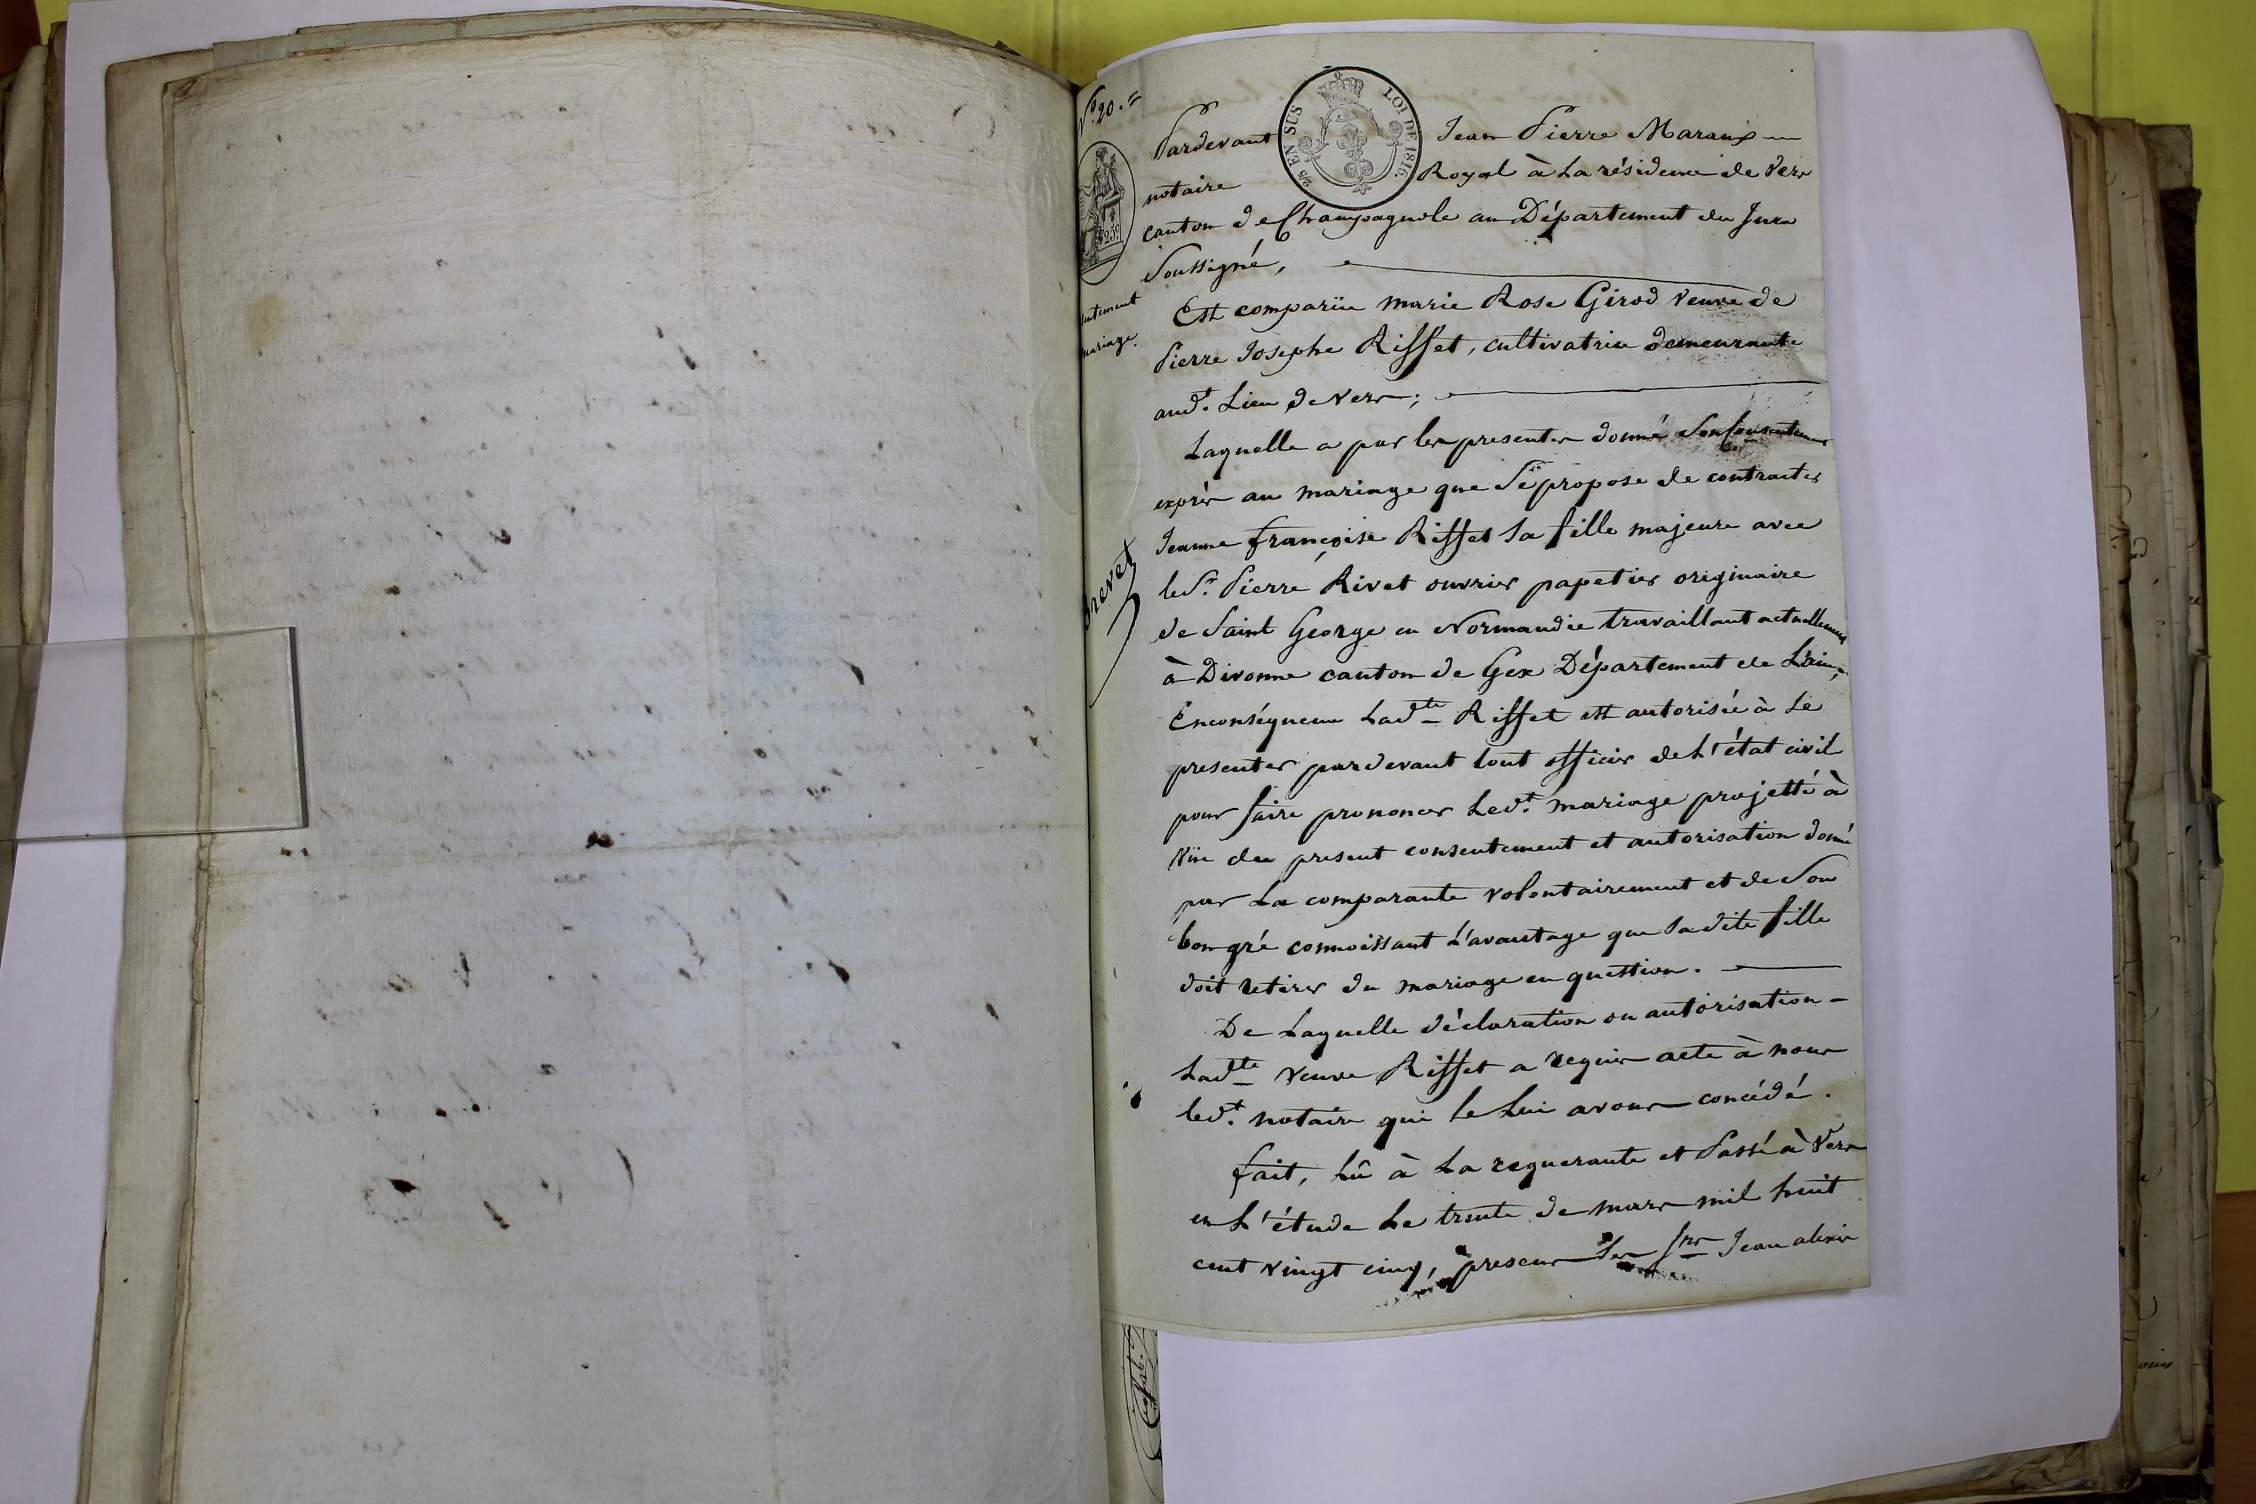 N.º 20.=
Pardevant Jean Pierre Maraux
EN SUS LOI DE 1816.
notaire Royal à La résidence de Vers
canton de Champagnole au Département du Jura
25c
Soussigné,
Est comparüe marie Rose Girod Veuve de
Pierre Josephe Riffet, cultivatrice demeurante
aud.t Lieu de Vers;
sentement
mariage.
Laquelle a par les presentes donné Son Consentement
exprès au mariage que Se propose de contracter
Jeanne françoise Riffet Sa fille majeure avec
le S.r Pierre Rivet ouvrier papetier originaire
de Saint George en Normandie travaillant actuellement
à Divonne canton de Gex Département de L'ain,
Brevet
Enconséquence Ladte Riffet est autorisée à Se
presenter pardevant tout officier de L'état civil
pour faire prononcer Led.t mariage projetté à
vüe du present consentement et autorisation donné
par La comparante volontairement et de Son
bon gré connoissant L'avantage que Sa dite fille
doit retirer du mariage en question.
De Laquelle déclaration ou autorisation-
Ladte Veuve Riffet a requis acte à nous
led.t notaire qui Le Lui avons concédé.
fait, Lû à La requerante et Passé à Vers
en L'étude Le trente de mars mil huit
cent vingt cinq, presens Les Srs Jean alexis